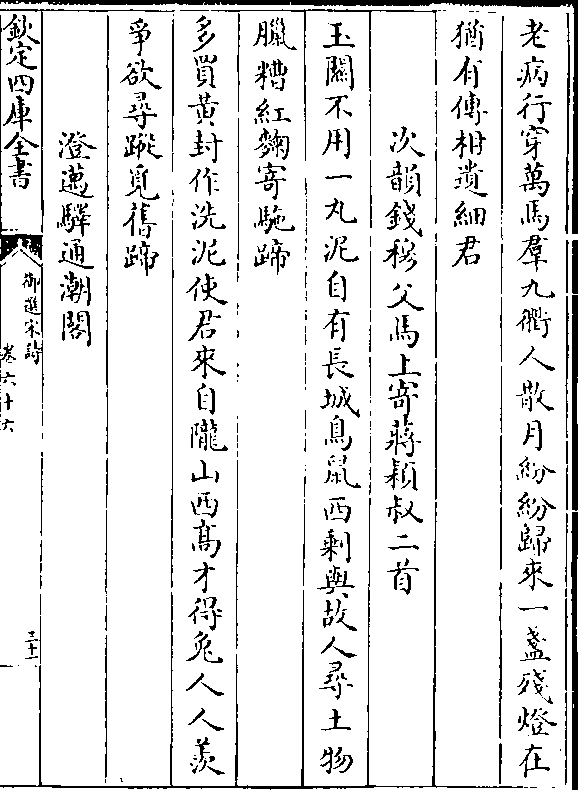 老病行穿萬馬羣九衢人散月紛紛歸來一盞殘燈在
猶有傳柑遺細君
次韻錢穆父馬上寄蔣穎叔二首
玉關不用一丸泥自有長城鳥鼠西剩與故人尋土物
臘糟紅麴寄駞蹄
多買黃封作洗泥使君來自隴山西髙才得兔人人羨
爭欲尋蹤覓舊蹄
澄邁驛通潮閣
欽定四庫全書
御選宋詩
卷六十六
三十二